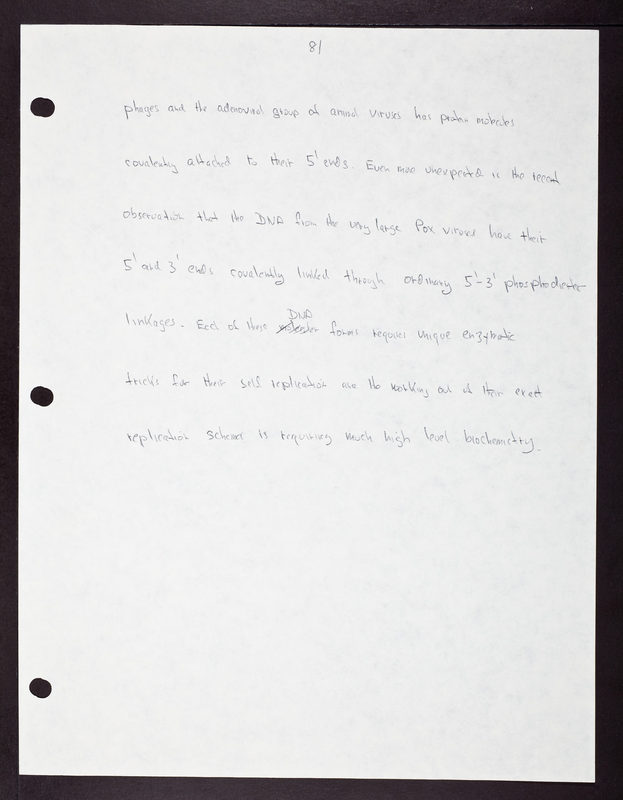 81
phages and the adenoviral group of animal viruses has protein molecules
covalently attached to their 5' ends. Even more unexpected is the recent
observation that the DNA from the very large Pox viruses have their
5' and 3' ends covalently linked through ordinary 5'-3' phosphodiester
DNA
linkages. Each of these forms requires unique enzymatic
tricks for their self replication and the working out of their exact
replication schemes is requiring much high level biochemistry.